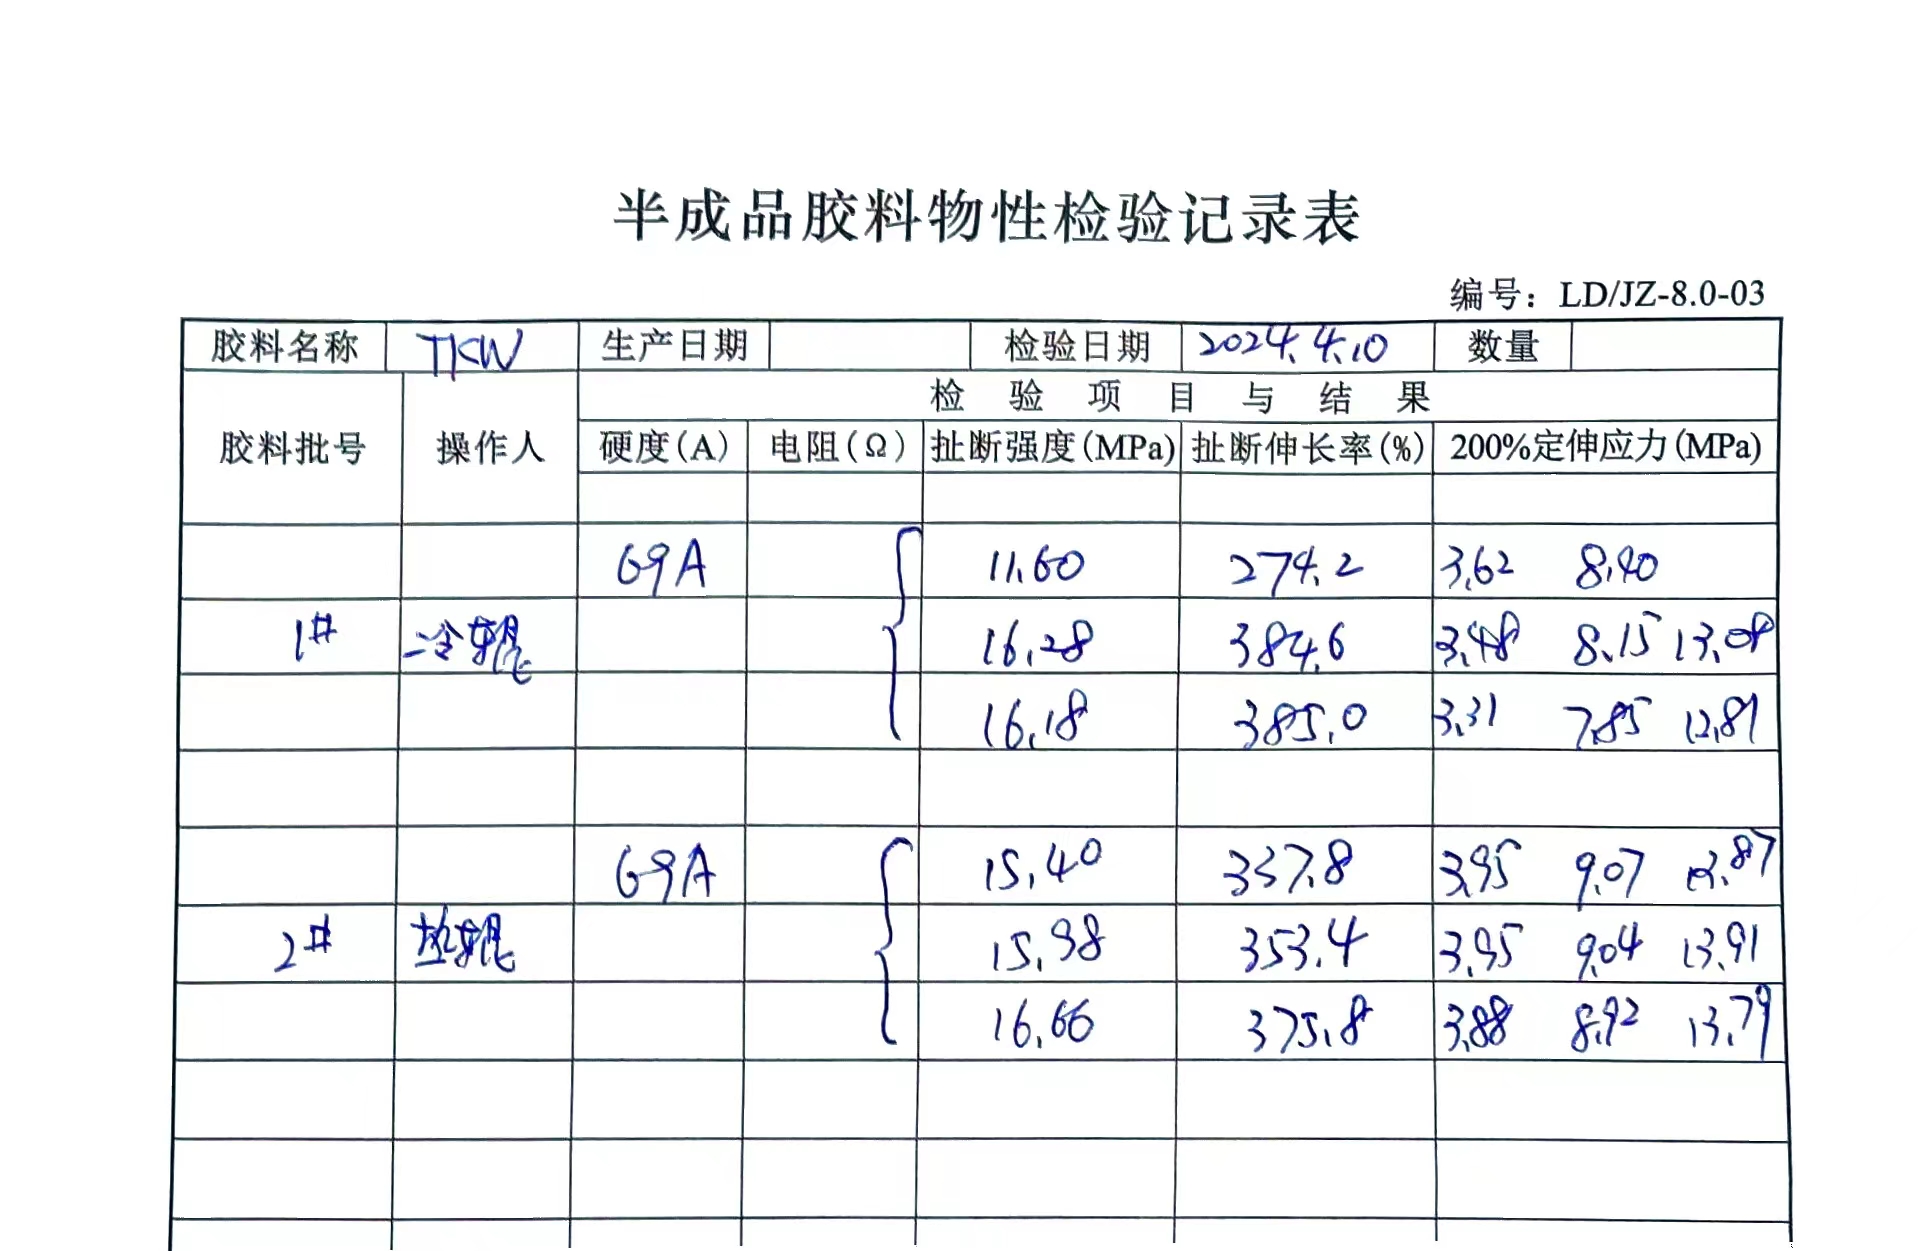 半成品胶料物性检验记录表
编号：LD/JZ-8.0-03
胶料名称 TKW 生产日期 检验日期 2024.4.10 数量
检验项目与结果
胶料批号 操作人 硬度(A) 电阻(Ω) 扯断强度(MPa) 扯断伸长率(%) 200%定伸应力(MPa)
69A 11.60 274.2 3.62 8.40
1# 冷辊 16.28 384.6 3.48 8.15 13.08
16.18 385.0 3.31 7.85 12.81
69A 15.40 337.8 3.95 9.07 13.87
2# 热辊 15.98 353.4 3.95 9.04 13.91
16.66 375.8 3.88 8.92 13.79